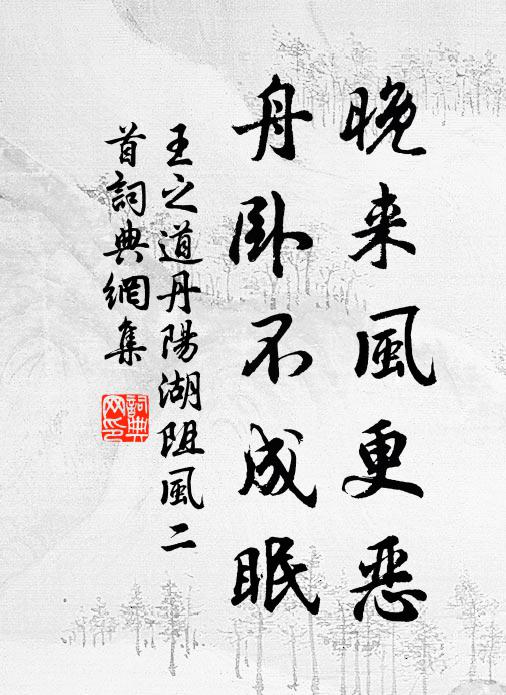 晚来風更恶
舟卧不成眠
王之道丹陽湖阻風二
首詞典網集
詞典
网印